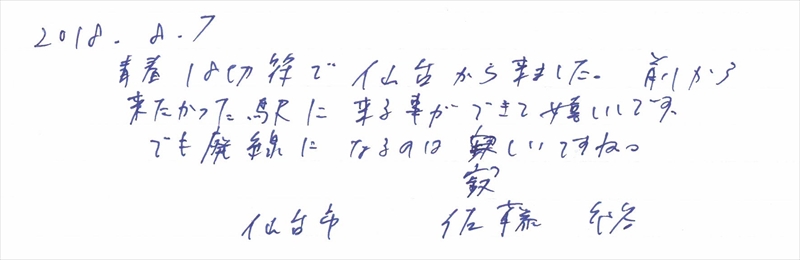 2018.8.7
青春18切符で仙台から来ました。前から
来たかった駅に来る事ができて嬉しいです。
でも廃線になるのは寂しいですね。
仙台市 佐藤